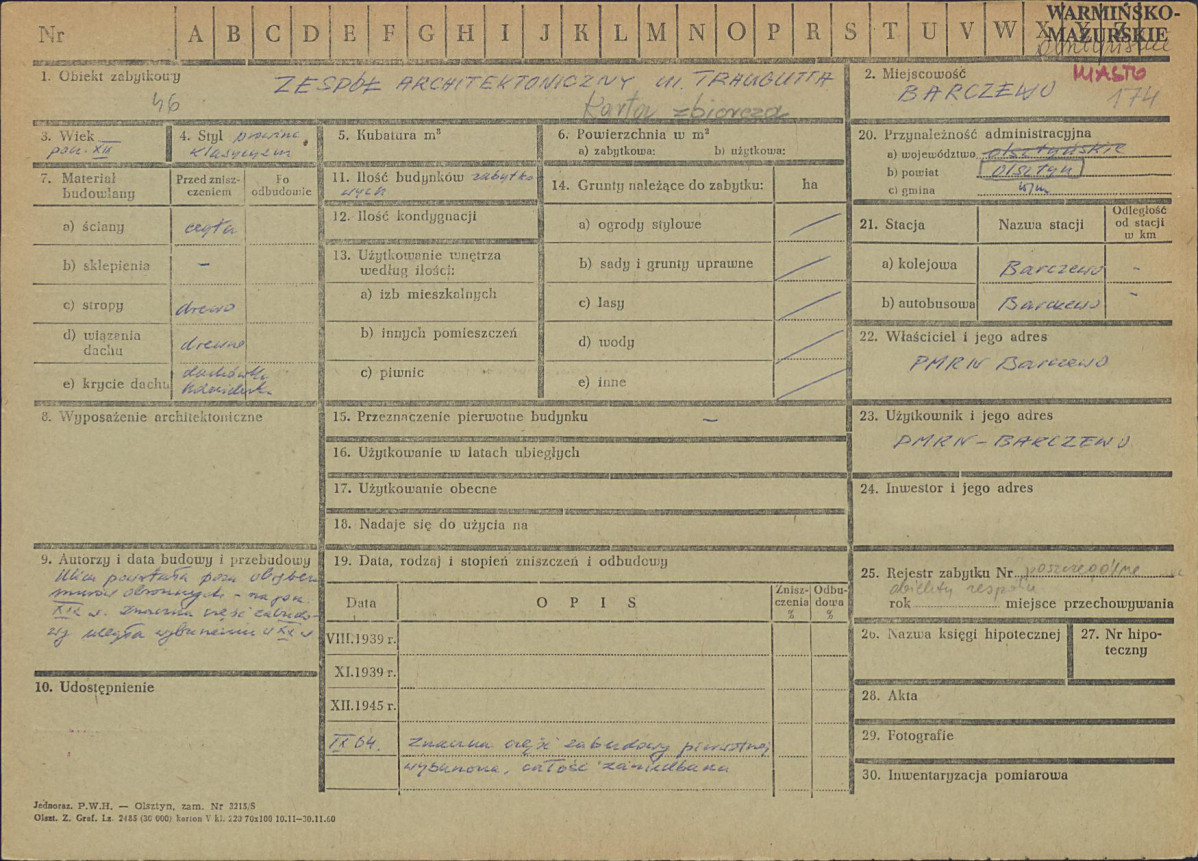 Nr A B C D E F G H I J K L M N O P R S T U V W X Y Z
WARMIŃSKO-
MAZURSKIE
1. Obiekt zabytkowy
ZESPÓŁ ARCHITEKTONICZNY ul. TRAUGUTTA
Karta zbiorcza
46
2. Miejscowość
MIASTO
BARCZEWO
174
3. Wiek
pocz. XIX
4. Styl prowinc.
klasycyzm
5. Kubatura m³
6. Powierzchnia w m²
a) zabytkowa: b) użytkowa:
7. Materiał
budowlany
Przed znisz-
czeniem
Po
odbudowie
a) ściany cegła
b) sklepienia –
c) stropy drewno
d) wiązenia
dachu
drewno
e) krycie dachu dachówka
8. Wyposażenie architektoniczne
9. Autorzy i data budowy i przebudowy
Ulica powstała poza obrębem
murów obronnych - na pocz.
XIX w. znaczna część zabudo-
wy uległa wyburzeniu w XX w
10. Udostępnienie
11. Ilość budynków zabytko-
wych
12. Ilość kondygnacji
13. Użytkowanie wnętrza
według ilości:
a) izb mieszkalnych
b) innych pomieszczeń
c) piwnic
14. Grunty należące do zabytku: ha
a) ogrody stylowe
b) sady i grunty uprawne
c) lasy
d) wody
e) inne
15. Przeznaczenie pierwotne budynku –
16. Użytkowanie w latach ubiegłych
17. Użytkowanie obecne
18. Nadaje się do użycia na
19. Data, rodzaj i stopień zniszczeń i odbudowy
Data O P I S Znisz-
czenia
%
Odbu-
dowa
%
VIII.1939 r.
XI.1939 r.
XII.1945 r.
IX 64. znaczna część zabudowy pierwotnej
wyburzona, całość zaniedbana
20. Przynależność administracyjna
a) województwo olsztyńskie
b) powiat OLSZTYN
c) gmina
21. Stacja Nazwa stacji Odległość
od stacji
w km
a) kolejowa Barczewo -
b) autobusowa Barczewo -
22. Właściciel i jego adres
PMRN Barczewo
23. Użytkownik i jego adres
PMRN – BARCZEWO
24. Inwestor i jego adres
25. Rejestr zabytku Nr poszczególne
obiekty zespołu
rok miejsce przechowywania
26. Nazwa księgi hipotecznej
27. Nr hipo-
teczny
28. Akta
29. Fotografie
30. Inwentaryzacja pomiarowa
Jednoraz. P.W.H. — Olsztyn, zam. Nr 3215/S
Olszt. Z. Graf. Lz. 2485 (30 000) karton V kl. 220 70x100 10.11—30.11.60